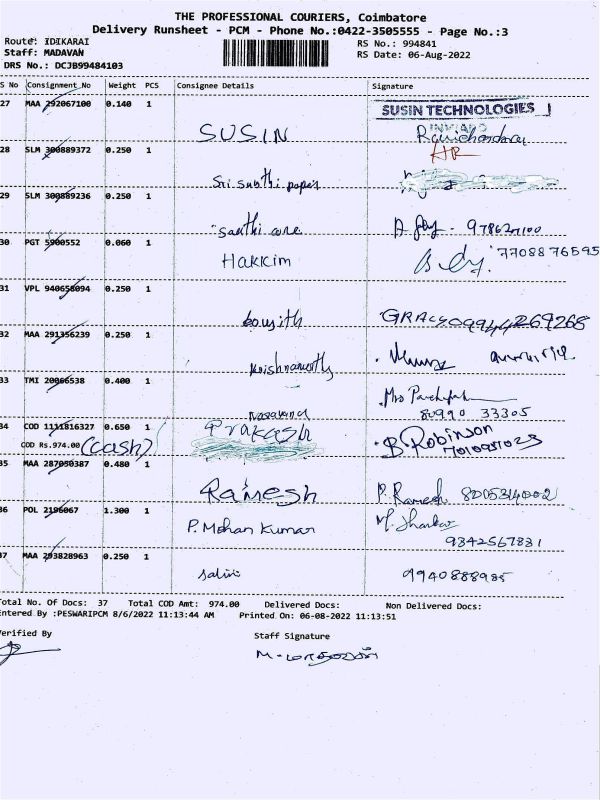 THE PROFESSIONAL COURIERS, Coimbatore
Delivery Runsheet - PCM - Phone No.:0422-3505555 - Page No.:3
Route: IDIKARAI
RS No.: 994841
Staff: MADAVAN
RS Date: 06-Aug-2022
DRS No.: DCJB99484103
S No Consignment No Weight PCS Consignee Details Signature
27 MAA 292067100 0.140 1 SUSIN SUSIN TECHNOLOGIES
Ravichandran
HR
28 SLM 300889372 0.250 1
29 SLM 300889236 0.250 1
30 PGT 5900552 0.060 1 HAKKIM 7708876595
31 VPL 940658094 0.250 1
GRACY 09944269268
32 MAA 291356239 0.250 1
33 TMI 20066538 0.400 1
80990 33305
34 COD 1111816327 0.650 1 Prakash B. Robinson
COD Rs.974.00 (cash)
35 MAA 287050387 0.480 1 Ramesh P. Ramesh
36 POL 2196067 1.300 1 P. Mohan Kumar
9342567831
37 MAA 293828963 0.250 1 9940888985
Total No. Of Docs: 37 Total COD Amt: 974.00 Delivered Docs: Non Delivered Docs:
Entered By :PESWARIPCM 8/6/2022 11:13:44 AM Printed On: 06-08-2022 11:13:51
Verified By Staff Signature